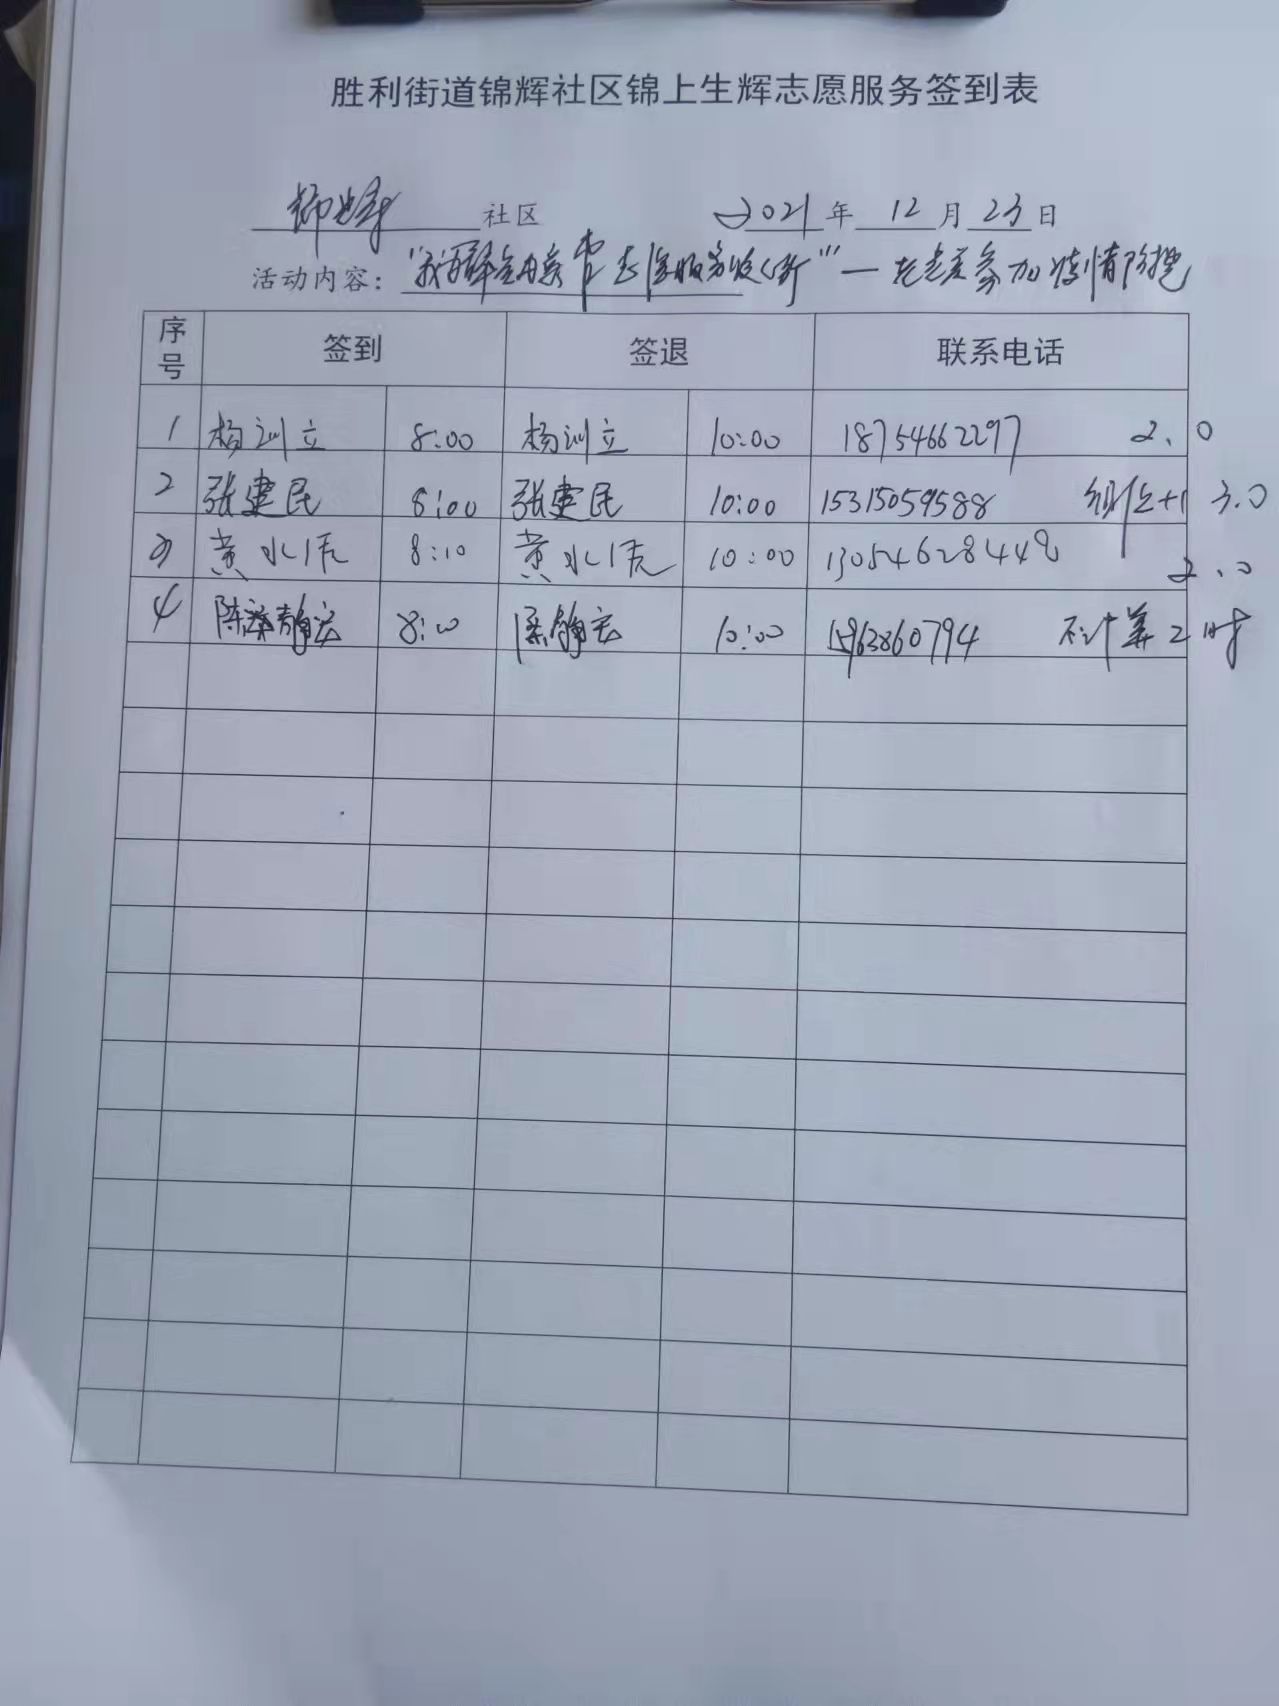 胜利街道锦辉社区锦上生辉志愿服务签到表
锦辉 社区 2021 年 12 月 23 日
活动内容： 参加疫情防控
序号 签到 签退 联系电话
1 杨训立 8:00 杨训立 10:00 18754662297 2.0
2 张建民 8:00 张建民 10:00 15315059588 组长+1 3.0
3 黄水 8:10 黄水 10:00 13054628448 2.0
4 静宏 8:10 梁静宏 10:00 15963860794 不计算工时